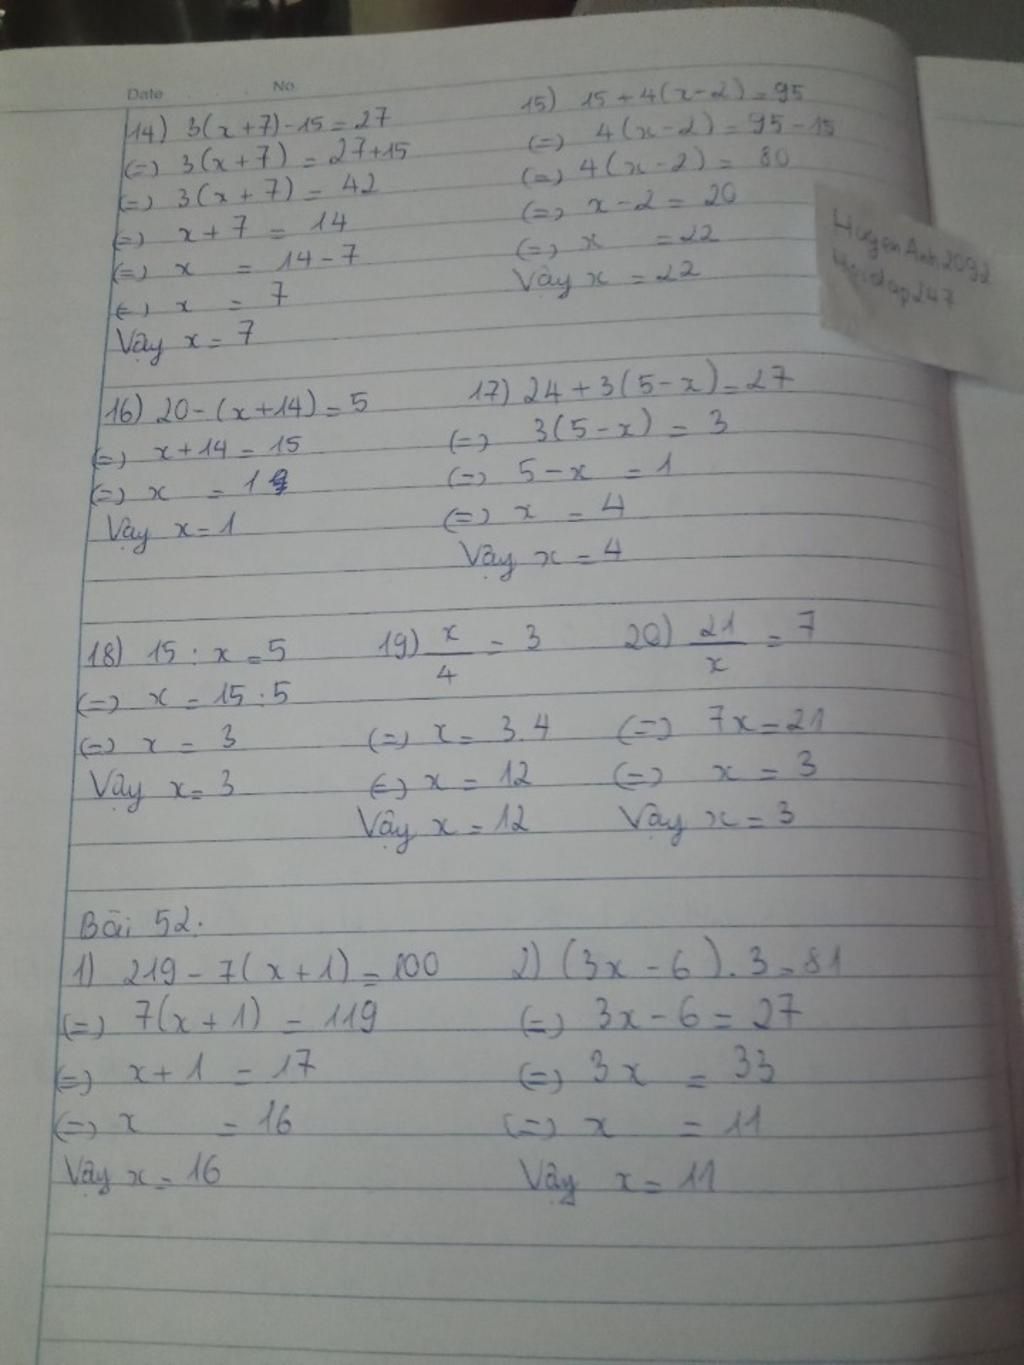 Date No
14) 3(x+7)-15=27
(=) 3(x+7) = 27+15
(=) 3(x+7) = 42
(=) x+7 = 14
(=) x = 14-7
(=) x = 7
Vậy x = 7
15) 15+4(x-2)=95
(=) 4(x-2) = 95-15
(=) 4(x-2) = 80
(=) x-2 = 20
(=) x = 22
Vậy x = 22
HuyenAnh2092
Hoidap247
16) 20-(x+14)=5
(=) x+14 = 15
(=) x = 1
Vậy x=1
17) 24+3(5-x)=27
(=) 3(5-x) = 3
(=) 5-x = 1
(=) x = 4
Vậy x = 4
18) 15 : x = 5
(=) x = 15:5
(=) x = 3
Vậy x = 3
19) x/4 = 3
(=) x = 3.4
(=) x = 12
Vậy x = 12
20) 21/x = 7
(=) 7x = 21
(=) x = 3
Vậy x = 3
Bài 52.
1) 219-7(x+1)=100
(=) 7(x+1) = 119
(=) x+1 = 17
(=) x = 16
Vậy x = 16
2) (3x-6).3=81
(=) 3x-6 = 27
(=) 3x = 33
(=) x = 11
Vậy x = 11